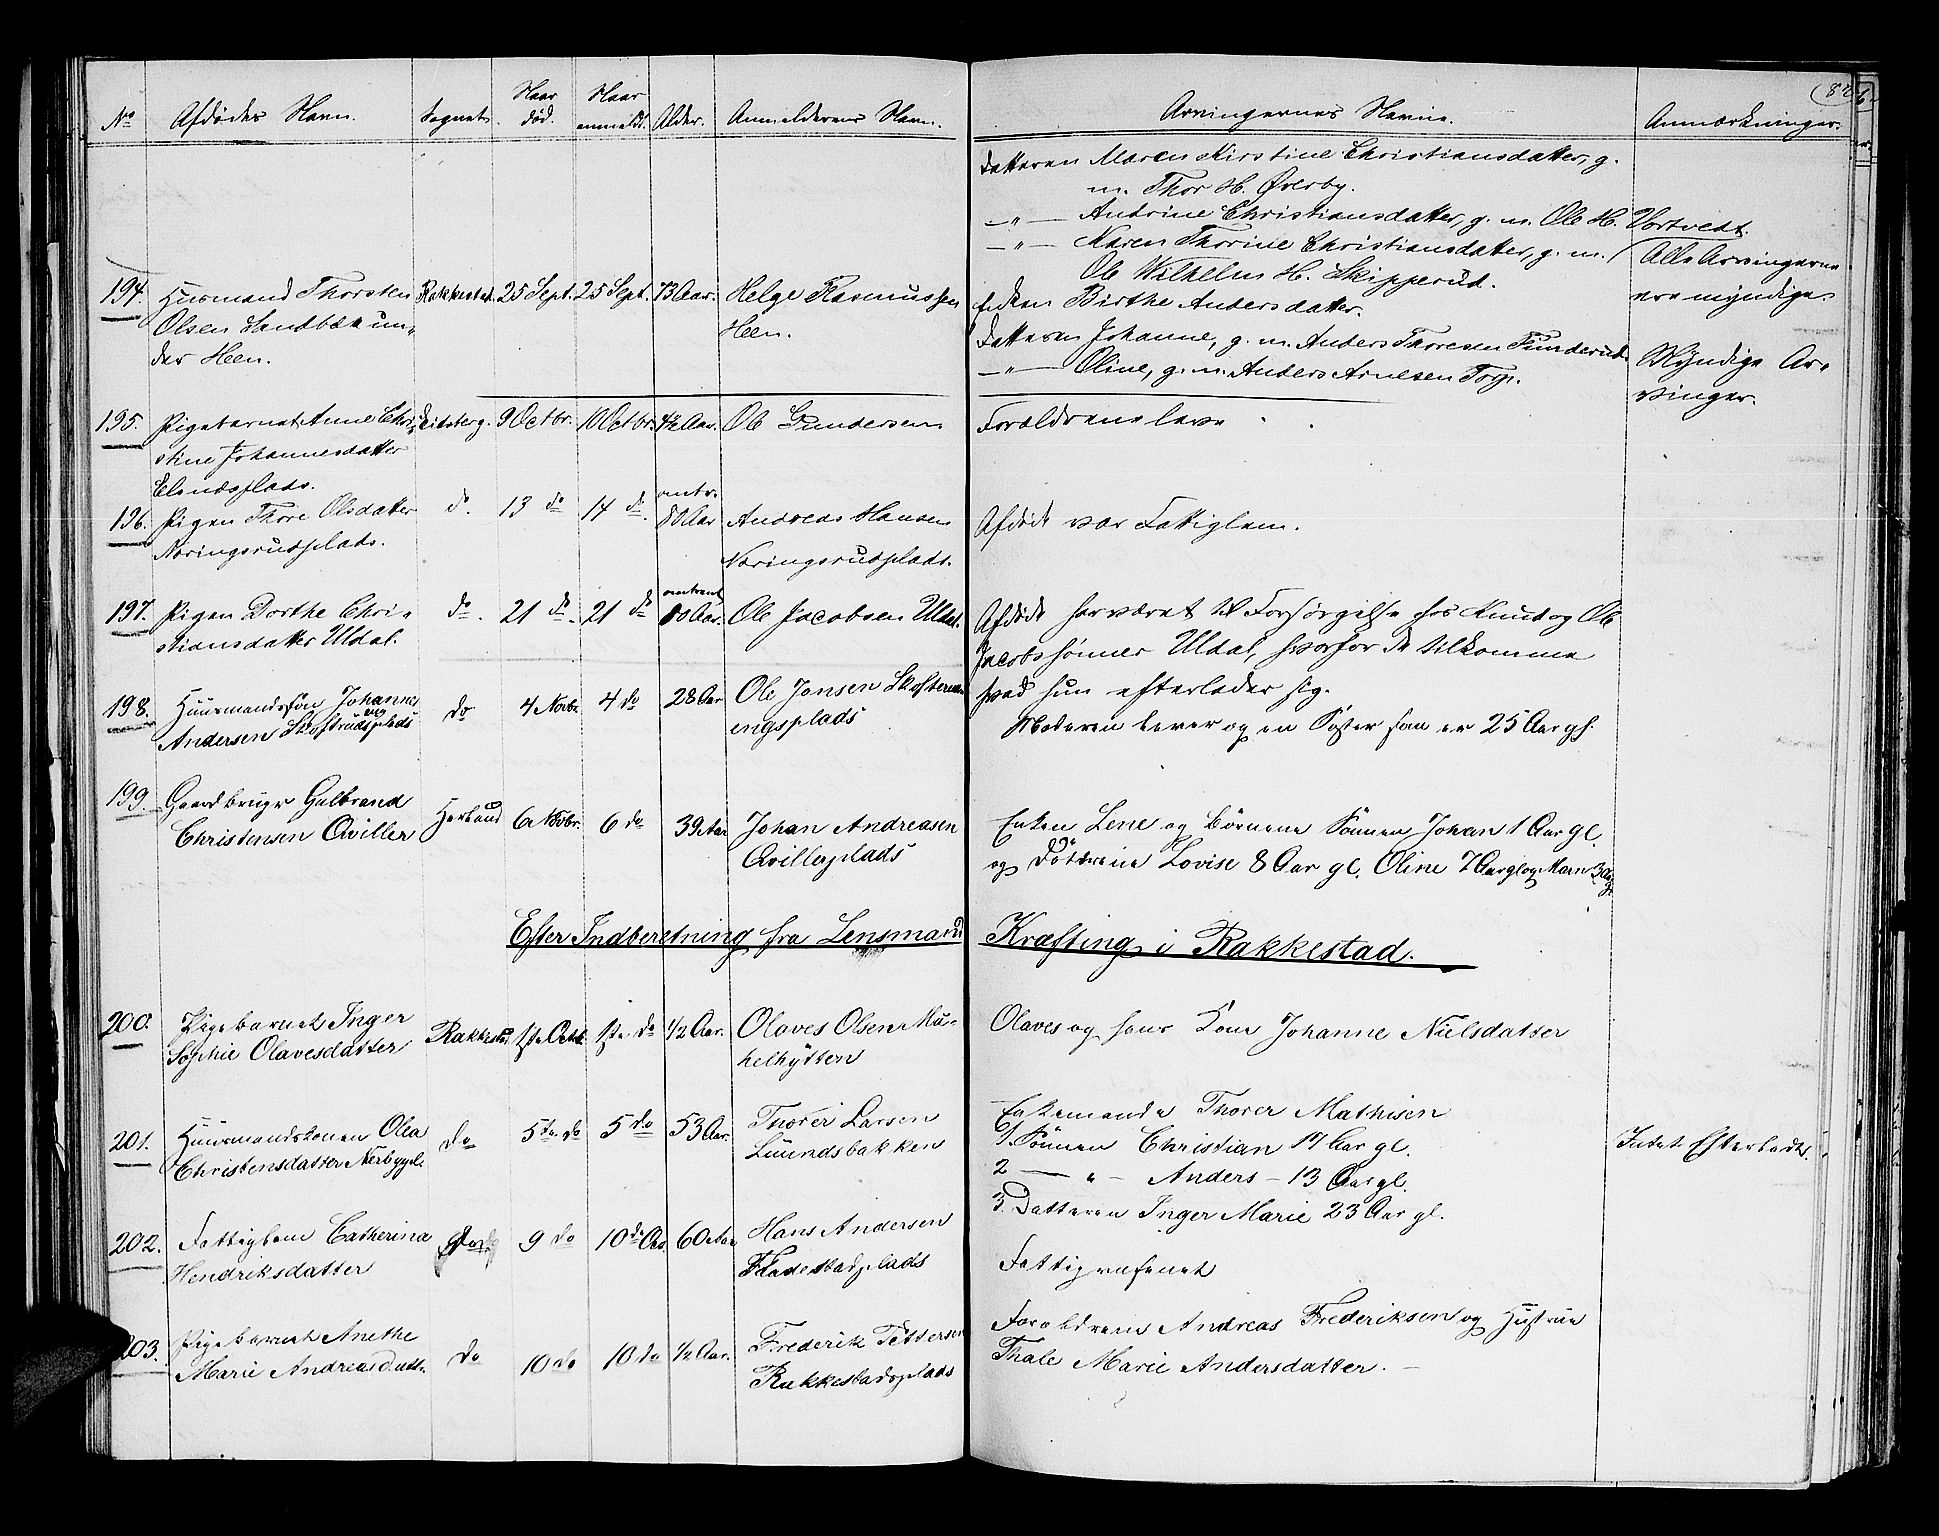 No Afdødes Navn. Sognet. Naar død. Naar anmeldt. Alder. Anmelderens Navn. Arvingernes Navne. Anmærkninger.
82
Datteren Maren Kirstine Christiansdatter, g.
m. Thor H. Øverby.
—"— Andrine Christiansdatter, g. m. Ole H. Vortvedt.
—"— Karen Thorine Christiansdatter, g. m.
Ole Wilhelm H. Skipperud.
Alle Arvingerne
ere myndige
194. Husmand Thorsten Rakkestad. 25 Sept. 25 Sept. 73 Aar. Helge Rasmussen
Olsen Sandbæk un-
der Heen.
Heen.
Enken Birthe Andersdatter.
Datteren Johanne, g. m. Anders Thoresen Funderud.
—"— Oline, g. m. Anders Arnesen Torp.
Myndige Ar-
vinger.
195. Pigebarnet Anne Chri- 9 Octbr. 10 Octbr. 4½ Aar. Ole Gundersen Forældrene leve
stine Johannesdatter
196. Pigen Thore Olsdatter do. 13 do 14 do. omtr. 80 Aar Andreas Hansen Afdøde var Fattiglem.
Næringsrudplads.
Næringsrudplads.
197. Pigen Dorthe Chri- do. 21 do. 21 do omtrent 80 Aar. Ole Jacobsen Uldal.
stiansdatter Uldal.
Afdøde har været til Forsørgelse hos Knud og Ole
Jacobssønner Uldal, hvorfor de tilkomme
hvad hun efterlader sig.
198. Huusmandssøn Johannes do 4 Novbr 4 do 28 Aar Ole Jonsen
Andersen
engsplads
Moderen lever og en Søster som er 25 Aar gl.
199. Gaardbruger Gulbrand 6 Novbr. 6 do 39 Aar Johan Andreasen
Christensen Qviller
Qvillerplads
Enken Lene og Børnene Sønnen Johan 1 Aar gl.
og Døtrene Lovise 8 Aar gl. Oline 7 Aar gl og Maren 3 Aar gl.
Efter Indberetning fra Lensmand Kræfting i Rakkestad.
200. Pigebarnet Inger Rakkestad 1ste Octbr 1ste do ½ Aar. Olaves Olsen Mu-
Sophie Olavesdatter
helhytten
Olaves og hans Kone Johanne Nielsdatter
201. Huusmandskonen Olea do 5te do 5 do 53 Aar. Thorer Larsen
Christensdatter
Luundsbakken
Enkemanden Thorer Mathisen
1. Sønnen Christian 17 Aar gl.
2 —"— Anders – 13 Aar gl.
3. Datteren Inger Marie 23 Aar gl.
Intet Efterladt.
202. Fattiglem Catherina do 9 do 10 do 60 Aar Hans Andersen
Hendriksdatter
Fladestadplads
Fattigvæsenet
203. Pigebarnet Anethe do 10 do 10 do ½ Aar. Frederik Pettersen
Marie Andreasdatt.
Rakkestadsplads
Forældrene Andreas Frederiksen og Hustrue
Thale Marie Andersdatter. –